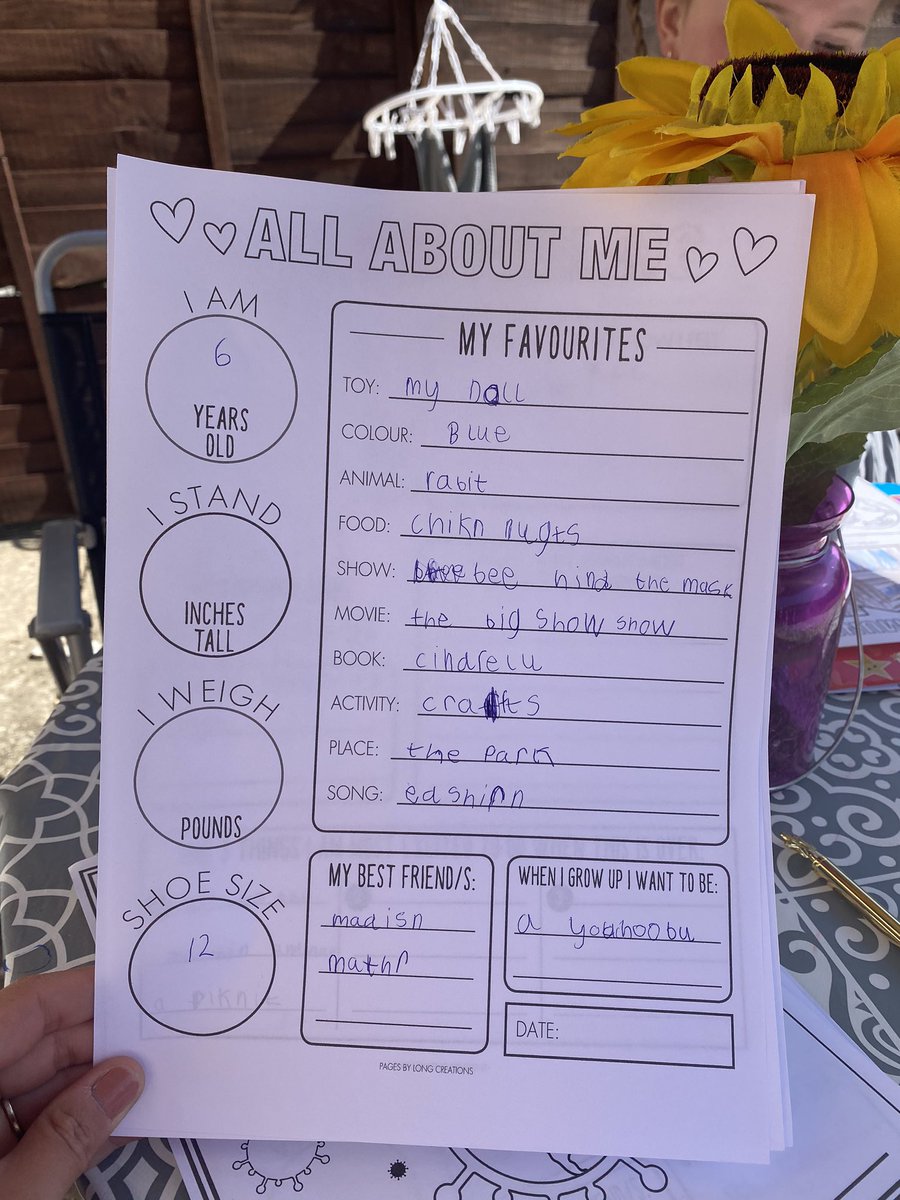 ALL ABOUT ME
I AM
6
YEARS
OLD
I STAND
INCHES
TALL
I WEIGH
POUNDS
SHOE SIZE
12
MY FAVOURITES
TOY: my Doll
COLOUR: Blue
ANIMAL: rabit
FOOD: chikn nugts
SHOW: bee hind the mask
MOVIE: the big show show
BOOK: cindrelu
ACTIVITY: crafts
PLACE: the park
SONG: ed shirn
MY BEST FRIEND/S:
madisn
WHEN I GROW UP I WANT TO BE:
a
DATE:
PAGES BY LONG CREATIONS